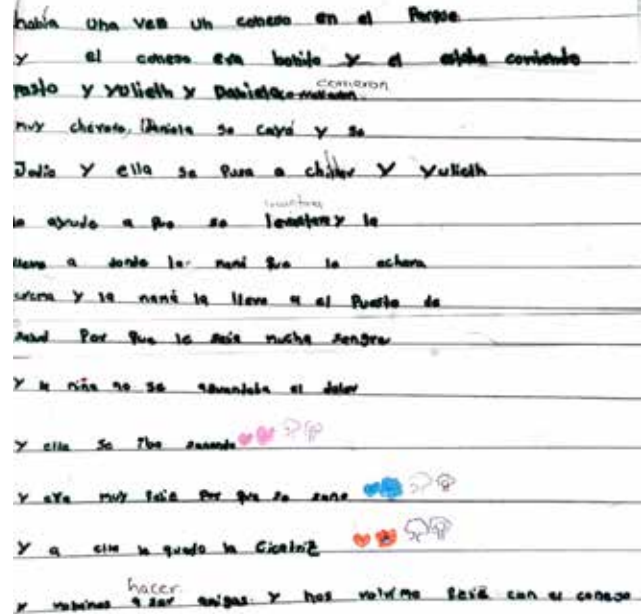 había una ves un conego en el Parque
y el conego era bonito y el estaba comiendo
pasto y yulieth y Daniela comieron
muy chevere, Daniela se cayó y se
Jodio y ella se Puso a chillar y yulieth
la ayudo a Que se levantara y la
llevo a donde la mamá Que le echara
crema y la mamá la llevo a el Puesto de
salud Por Que le salia mucha sangre
y la niña no se aguantaba el dolor
y ella se iba sanando
y era muy feliz Por Que se sano
y a ella le quedo la Cicatriz
y volvimos hacer amigas y nos volvimo feliz con el conego